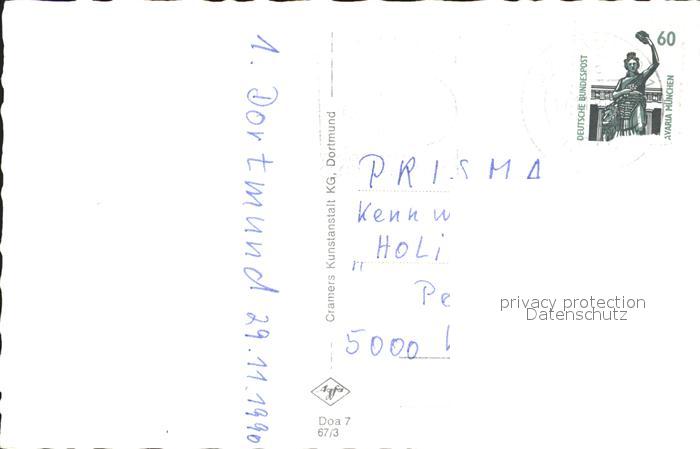 1. Dortmund 29.11.1990
Cramers Kunstanstalt KG, Dortmund
Agfa
Doa 7
67/3
60
DEUTSCHE BUNDESPOST
AVARIA MÜNCHEN
PRISMA
Kennw
"HOLi
Pe
5000
privacy protection
Datenschutz